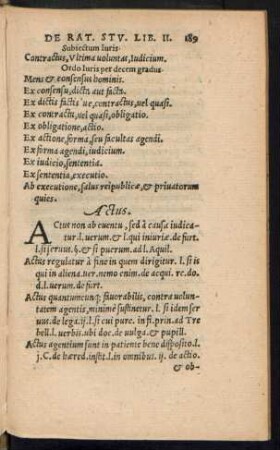 DE RAT. STV. LIB. II. 189
Subiectum Iuris.
Contractus, Vltima uoluntas, Iudicium.
Ordo Iuris per decem gradus.
Mens & consensus hominis.
Ex consensu, dictū aut factū.
Ex dictis factis ue, contractus, uel quasi.
Ex contractu, uel quasi, obligatio.
Ex obligatione, actio.
Ex actione, forma, seu facultas agendi.
Ex forma agendi, iudicium.
Ex iudicio, sententia.
Ex sententia, executio.
Ab executione, salus reipublicæ, & priuatorum
quies.
Actus.
ACtus non ab euentu, sed à causa iudica
tur. l. uerum. & l. qui iniuriæ. de furt.
l. si seruū. §. & si puerum. ad l. Aquil.
Actus regulatur à fine in quem dirigitur. l. si is
qui in aliena. uer. nemo enim. de acqui. re. do.
d. l. uerum. de furt.
Actus quantumcunq; fauorabilis, contra uolun
tatem agentis, minimè sustinetur. l. si idem ser
uus. de lega. ij. l. si cui pure. in fi. prin. ad Tre
bell. l. uerbis. ubi doc. de uulga. & pupill.
Actus agentium sunt in patiente bene disposito. l.
j. C. de hæred. instit. l. in omnibus. ij. de actio.
& ob-